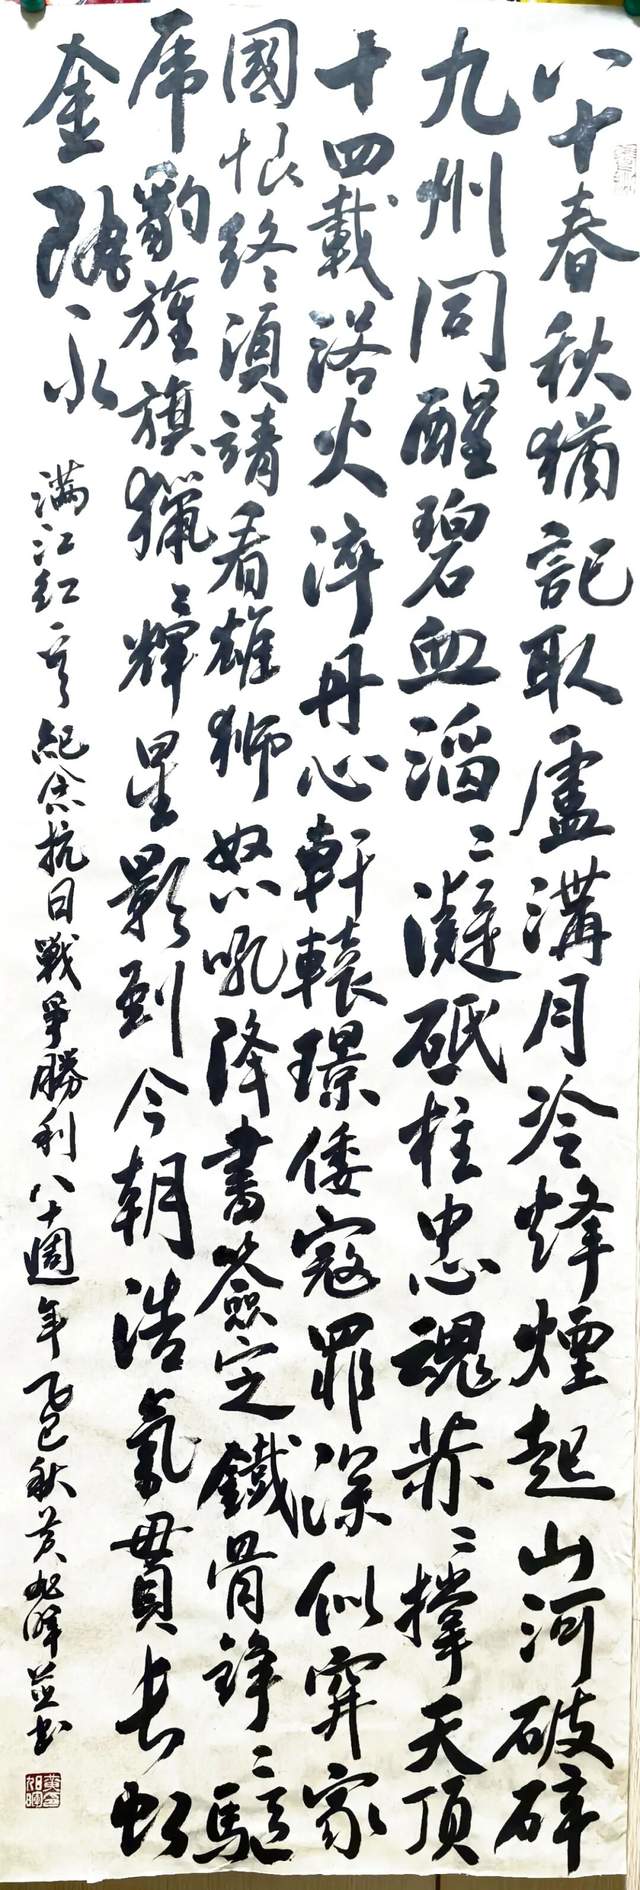 八十春秋猶記取盧溝月冷烽煙起山河破碎
九州同醒碧血滔〻凝砥柱忠魂茶〻撐天頂
十四載浴火淬丹心軒轅璟倭寇罪深似穽家
國恨終須靖看雄獅怒吼降書簽定鐵骨錚〻驅
虎豹旌旗獵〻輝星影到今朝浩氣貫長虹
金陵永
满江红一首紀念抗日戰爭勝利八十週年乙巳秋黃旭暉並书